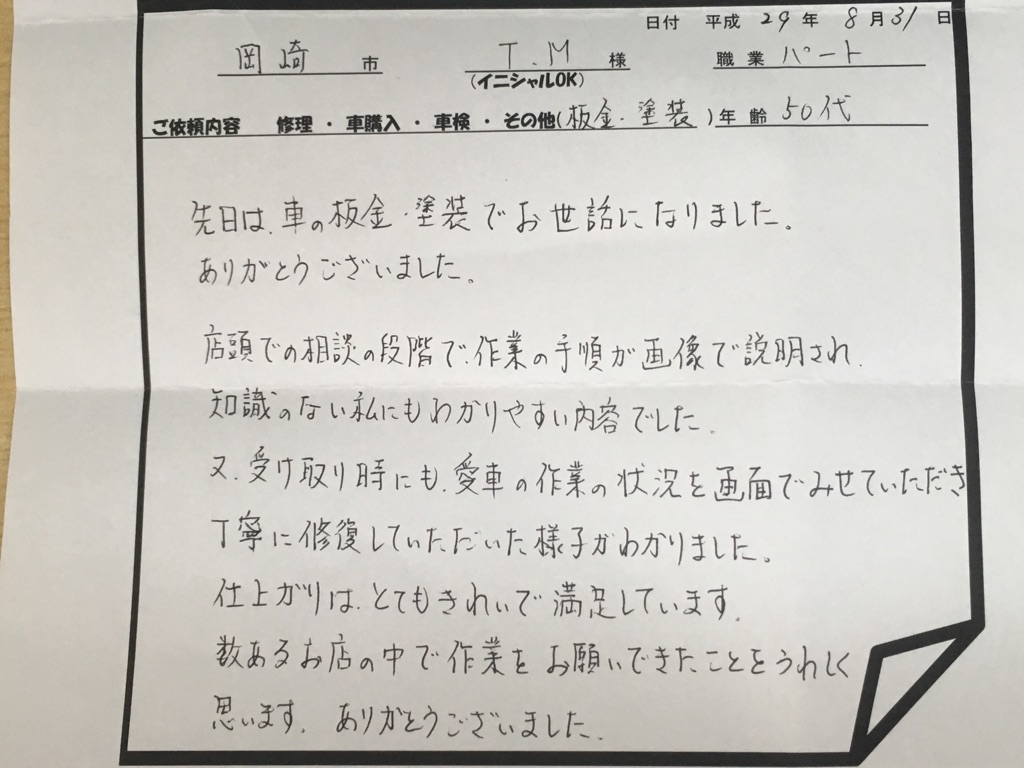 日付 平成 29 年 8 月 31 日
岡崎 市 T.M 様 職業 パート
(イニシャルOK)
ご依頼内容 修理・車購入・車検・その他(板金・塗装)年齢 50代
先日は、車の板金・塗装でお世話になりました。
ありがとうございました。
店頭での相談の段階で、作業の手順が画像で説明され、
知識のない私にもわかりやすい内容でした。
又、受け取り時にも、愛車の作業の状況を画面でみせていただき
丁寧に修復していただいた様子がわかりました。
仕上がりは、とてもきれいで満足しています。
数あるお店の中で作業をお願いできたことをうれしく
思います。ありがとうございました。